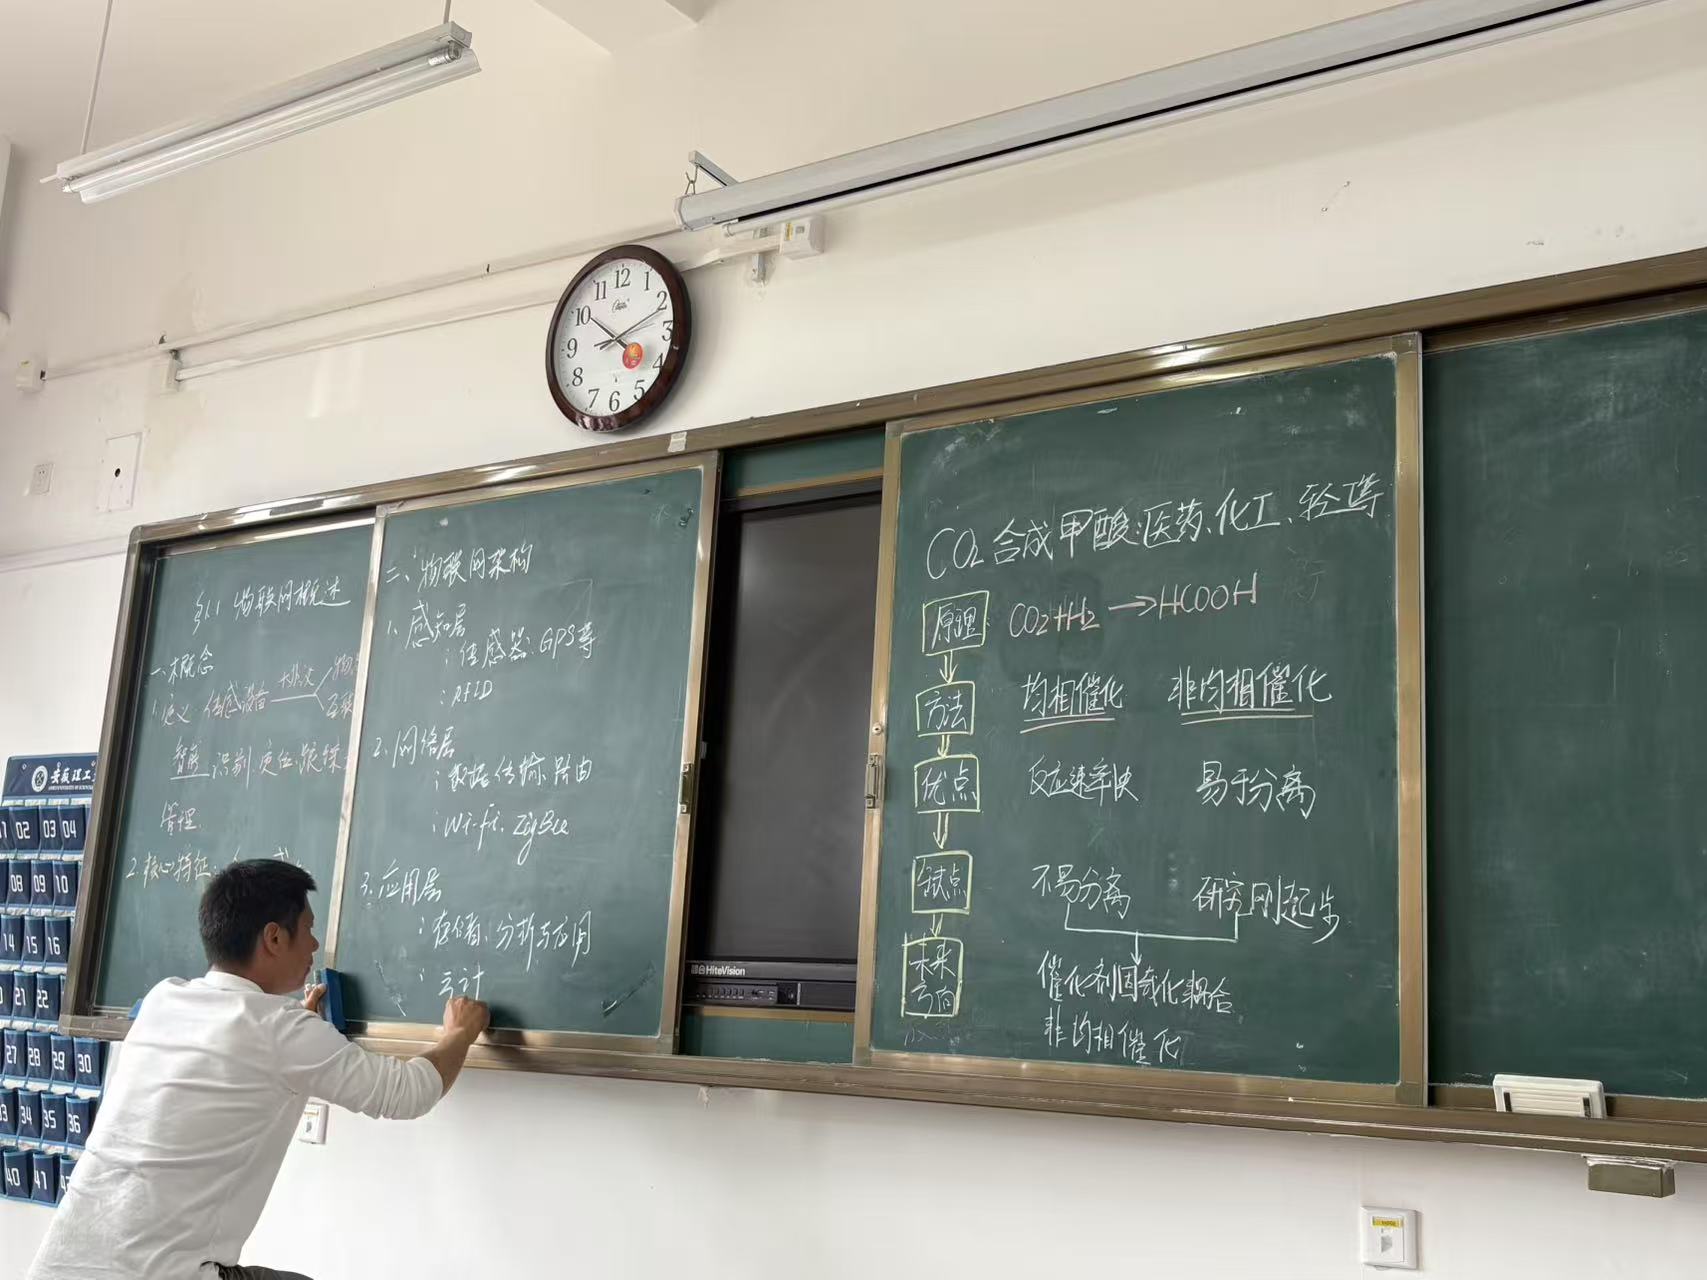 12
1
2
3
4
5
6
7
8
9
10
11
§1.1 物联网概述
一、概念
1. 定义 传感设备
智能 识别、定位、跟踪
管理.
2. 核心特征:
二、物联网架构
1、感知层
: 传感器、GPS等
: RFID
2、网络层
: 数据传输、路由
: Wi-fi、ZigBee
3、应用层
: 存储、分析与应用
: 云计
HiteVision
CO₂ 合成甲酸:医药、化工、轻工等
原理 CO₂+H₂ → HCOOH
方法 均相催化 非均相催化
优点 反应速率快 易于分离
缺点 不易分离 研究刚起步
未来方向 催化剂固载化耦合
非均相催化
安徽理工
02 03 04
08 09 10
14 15 16
21 22
27 28 29 30
34 35 36
40 41